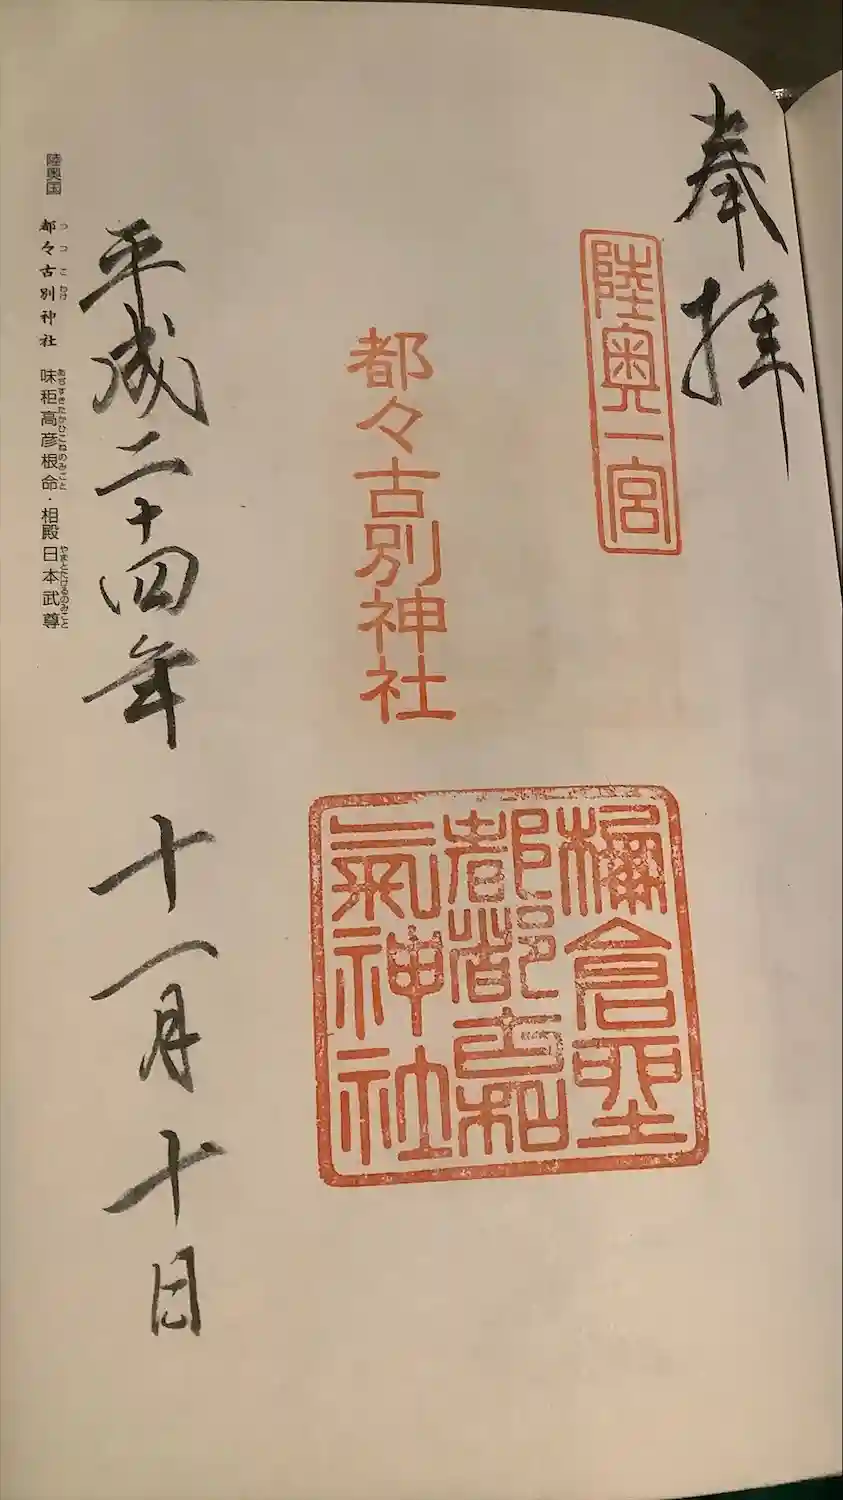 奉拝
陸奥一宮
都々古別神社
倉
都都古和
氣神社
平成二十四年 十一月十日
陸奥国 都々古別神社 味耜高彦根命・相殿日本武尊
つつこわけ
あぢすきたかひこねのみこと
やまとたけるのみこと